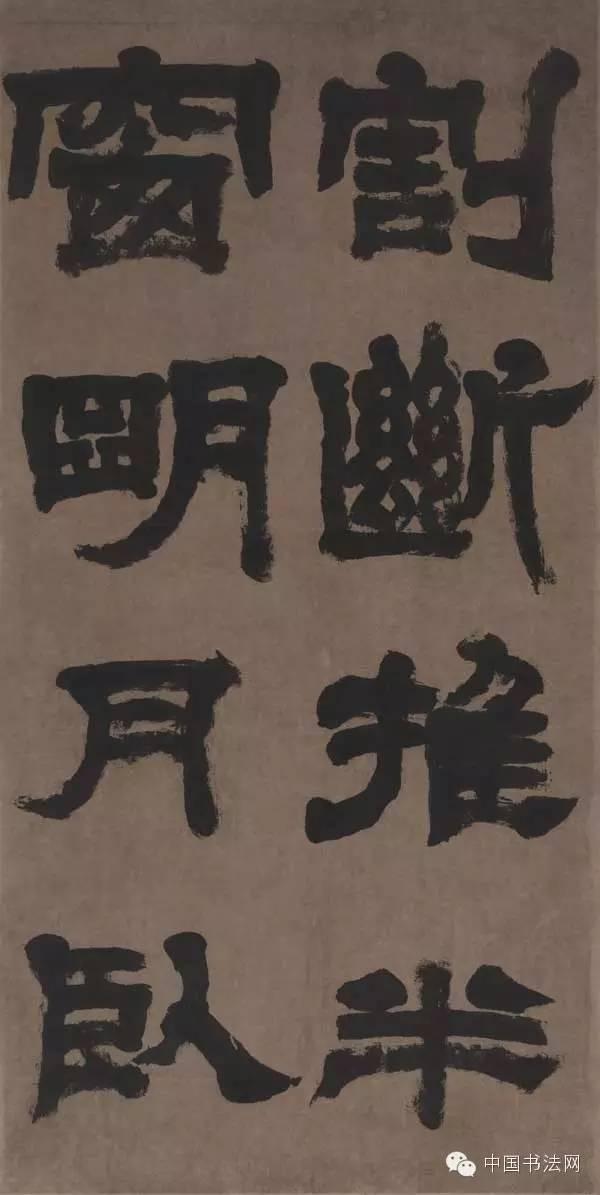 割斷推半
窗明月臥
中国书法网